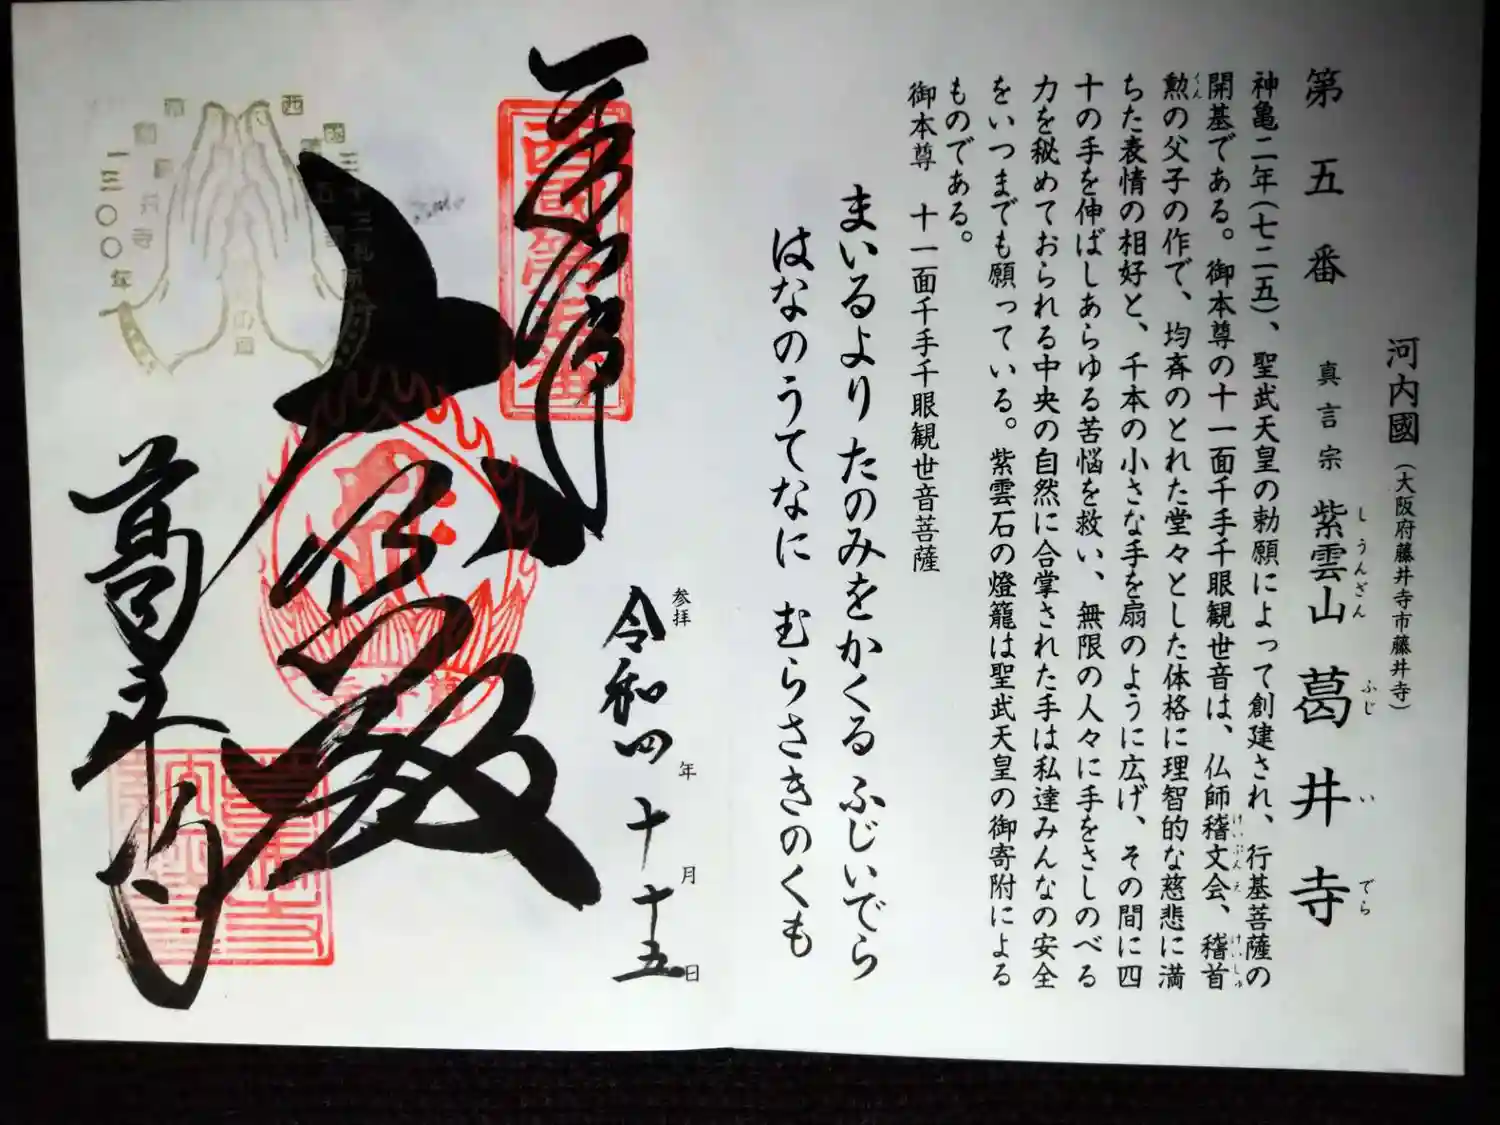 河内國（大阪府藤井寺市藤井寺）
第五番　真言宗　紫雲山　葛井寺
しうんざん　ふじいでら
神亀二年（七二五）、聖武天皇の勅願によって創建され、行基菩薩の
開基である。御本尊の十一面千手千眼観世音は、仏師稽文会、稽首
けいぶんえ　けいしゅ
勲の父子の作で、均斉のとれた堂々とした体格に理智的な慈悲に満
くん
ちた表情の相好と、千本の小さな手を扇のように広げ、その間に四
十の手を伸ばしあらゆる苦悩を救い、無限の人々に手をさしのべる
力を秘めておられる中央の自然に合掌された手は私達みんなの安全
をいつまでも願っている。紫雲石の燈籠は聖武天皇の御寄附による
ものである。
御本尊　十一面千手千眼観世音菩薩
まいるより たのみをかくる ふじいでら
はなのうてなに むらさきのくも
参拝
令和四年十月十五日
奉拝
西国第五番
大悲殿
葛井寺
一三〇〇年